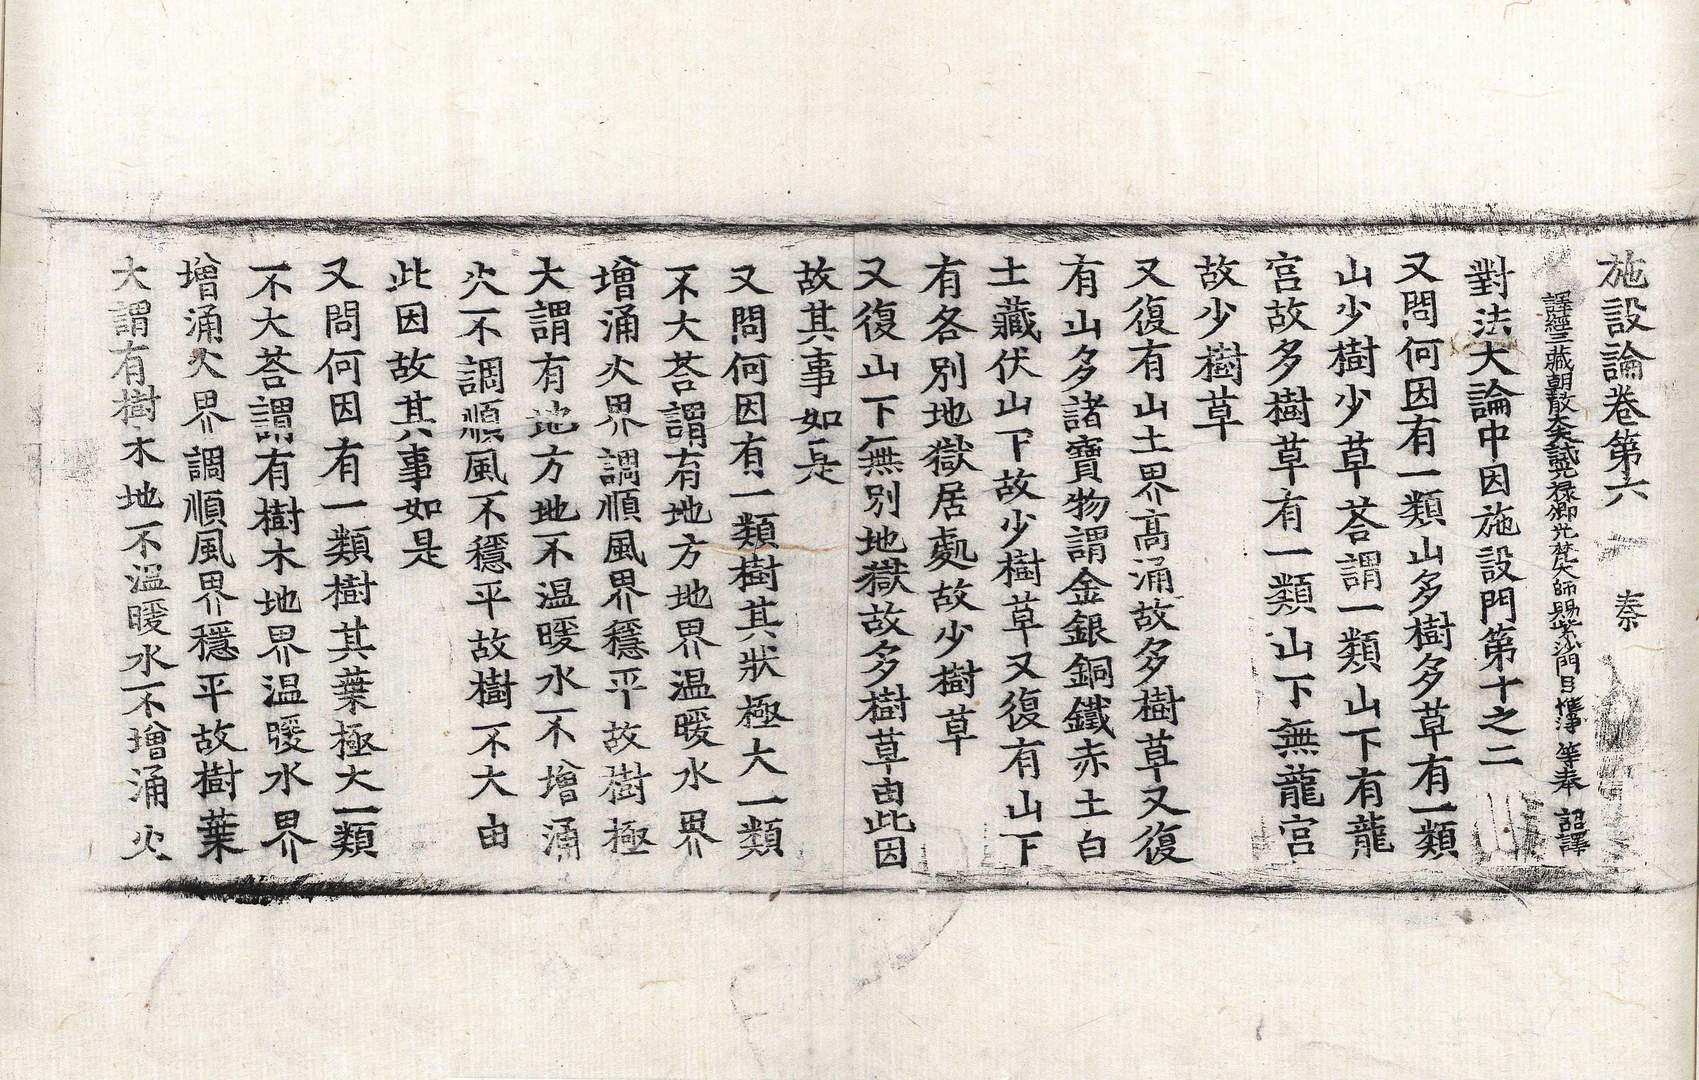 施設論卷第六　秦
譯經三藏朝散大夫試光祿卿光梵大師賜紫沙門臣惟淨等奉 詔譯
對法大論中因施設門第十之二
又問何因有一類山多樹多草有一類
山少樹少草荅謂一類山下有龍
宮故多樹草有一類山下無龍宮
故少樹草
又復有山土界高涌故多樹草又復
有山多諸寶物謂金銀銅鐵赤土白
土藏伏山下故少樹草又復有山下
有各別地獄居處故少樹草
又復山下無別地獄故多樹草由此因
故其事如是
又問何因有一類樹其狀極大一類
不大荅謂有地方地界温暖水界
增涌火界調順風界穩平故樹極
大謂有地方地不温暖水不增涌
火不調順風不穩平故樹不大由
此因故其事如是
又問何因有一類樹其葉極大一類
不大荅謂有樹木地界温暖水界
增涌火界調順風界穩平故樹葉
大謂有樹木地不温暖水不增涌火